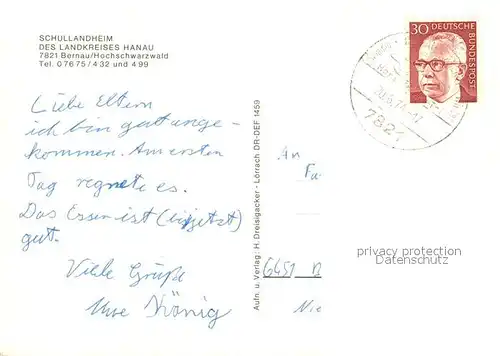 SCHULLANDHEIM
DES LANDKREISES HANAU
7821 Bernau/Hochschwarzwald
Tel. 0 76 75 / 4 32 und 4 99
Liebe Eltern
ich bin gut ange-
kommen. Am ersten
Tag regnete es.
Das Essen ist (bis jetzt)
gut.
Viele Grüße
Uwe König
Aufn. u. Verlag: H. Dreisigacker - Lörrach DR-DEF 1459
An
Fa
6451
30 DEUTSCHE BUNDESPOST
7821
privacy protection
Datenschutz